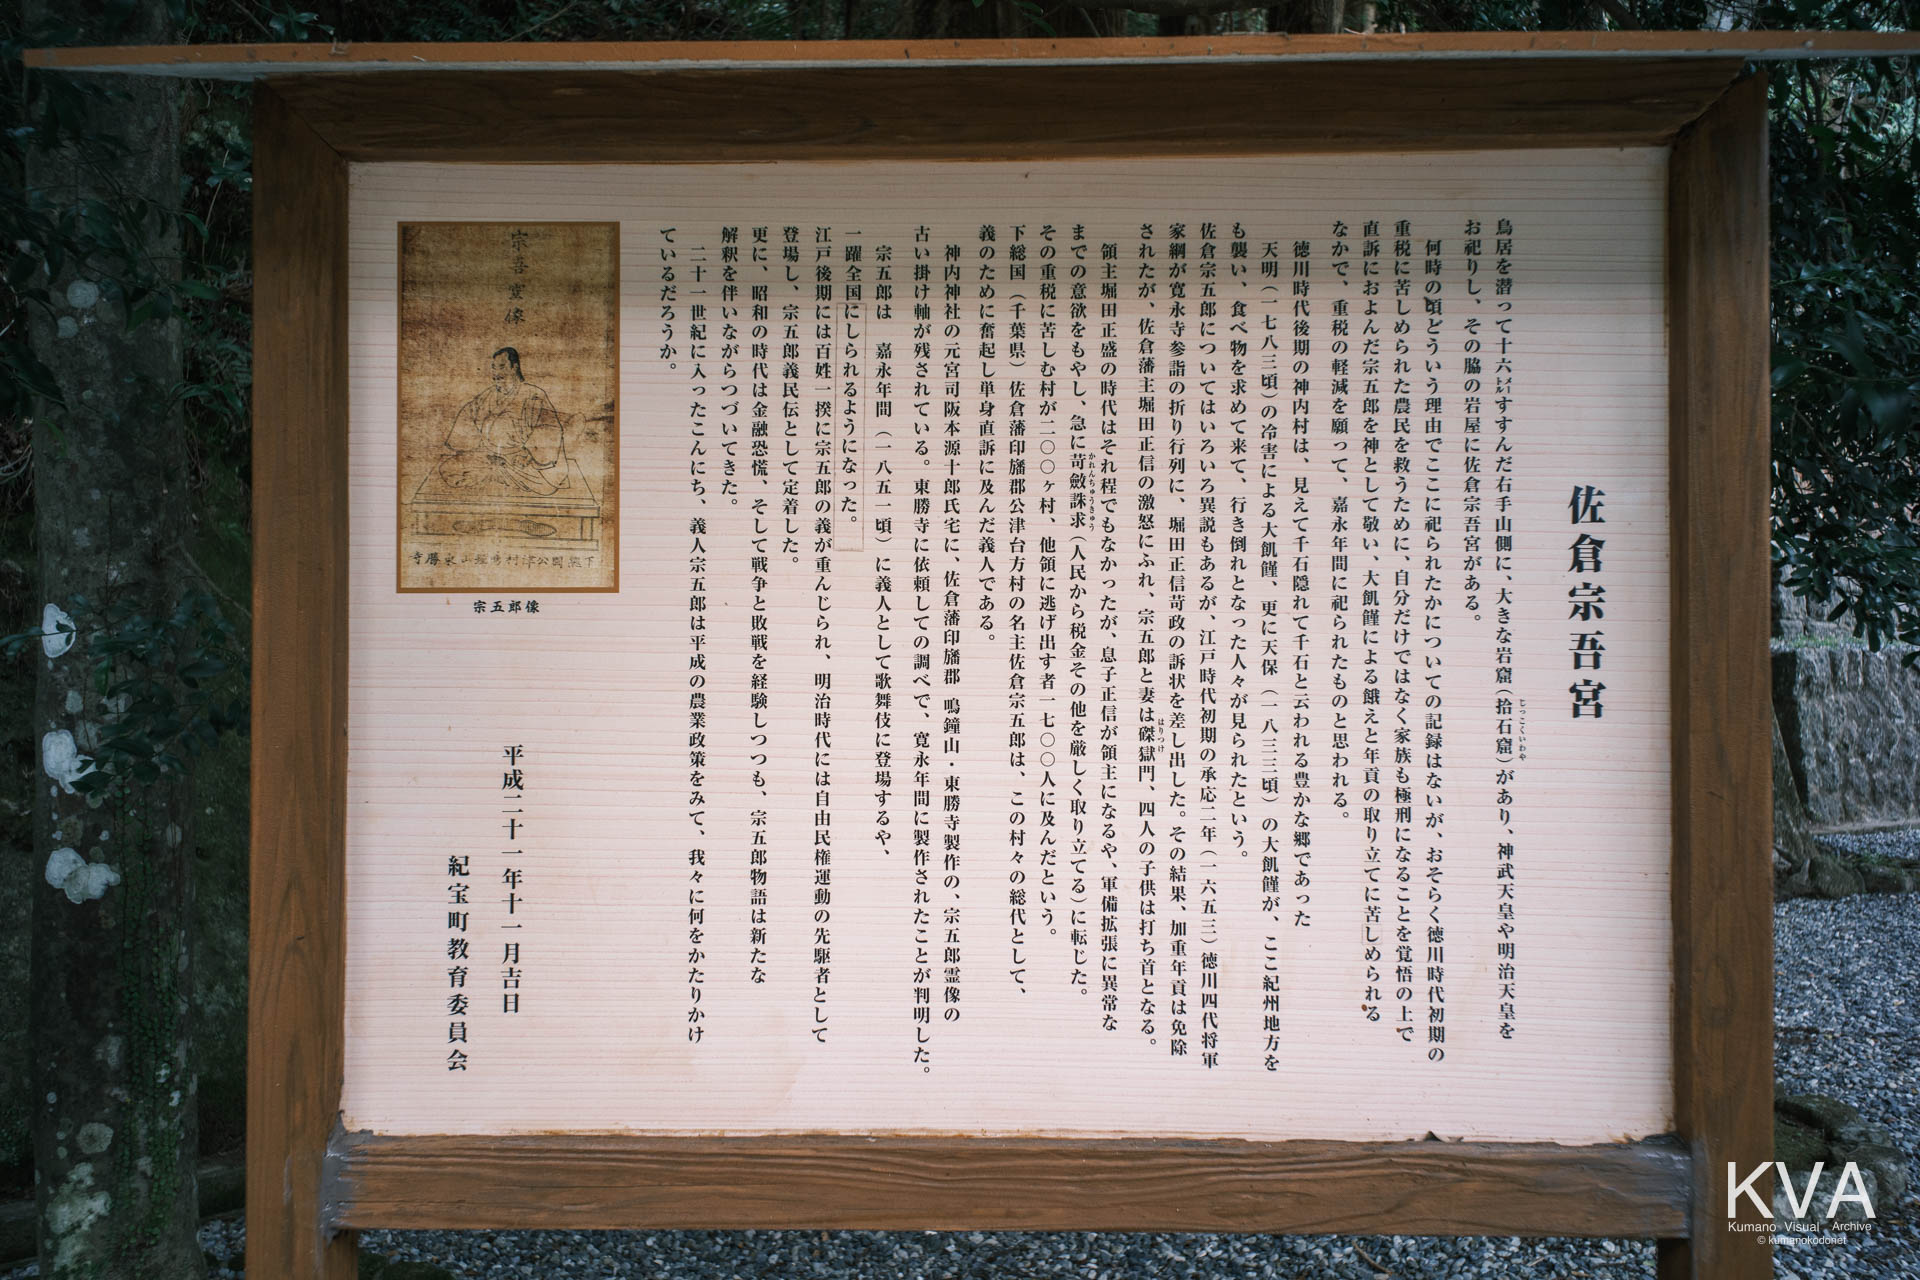 佐倉宗吾宮
鳥居を潜って十六メートルすすんだ右手山側に、大きな岩窟(拾石窟)があり、神武天皇や明治天皇を
じっこくいわや
お祀りし、その脇の岩屋に佐倉宗吾宮がある。
何時の頃どういう理由でここに祀られたかについての記録はないが、おそらく徳川時代初期の
重税に苦しめられた農民を救うために、自分だけではなく家族も極刑になることを覚悟の上で
直訴におよんだ宗五郎を神として敬い、大飢饉による餓えと年貢の取り立てに苦しめられる
なかで、重税の軽減を願って、嘉永年間に祀られたものと思われる。
徳川時代後期の神内村は、見えて千石隠れて千石と云われる豊かな郷であった
天明(一七八三頃)の冷害による大飢饉、更に天保(一八三三頃)の大飢饉が、ここ紀州地方を
も襲い、食べ物を求めて来て、行き倒れとなった人々が見られたという。
佐倉宗五郎についてはいろいろ異説もあるが、江戸時代初期の承応二年(一六五三)徳川四代将軍
家綱が寛永寺参詣の折り行列に、堀田正信苛政の訴状を差し出した。その結果、加重年貢は免除
されたが、佐倉藩主堀田正信の激怒にふれ、宗五郎と妻は磔獄門、四人の子供は打ち首となる。
はりつけ
領主堀田正盛の時代はそれ程でもなかったが、息子正信が領主になるや、軍備拡張に異常な
までの意欲をもやし、急に苛斂誅求(人民から税金その他を厳しく取り立てる)に転じた。
かれんちゅうきゅう
その重税に苦しむ村が二〇〇ヶ村、他領に逃げ出す者一七〇〇人に及んだという。
下総国(千葉県)佐倉藩印旛郡公津台方村の名主佐倉宗五郎は、この村々の総代として、
義のために奮起し単身直訴に及んだ義人である。
神内神社の元宮司阪本源十郎氏宅に、佐倉藩印旛郡 鳴鐘山・東勝寺製作の、宗五郎霊像の
古い掛け軸が残されている。東勝寺に依頼しての調べで、寛永年間に製作されたことが判明した。
宗五郎は 嘉永年間(一八五一頃)に義人として歌舞伎に登場するや、
一躍全国にしられるようになった。
江戸後期には百姓一揆に宗五郎の義が重んじられ、明治時代には自由民権運動の先駆者として
登場し、宗五郎義民伝として定着した。
更に、昭和の時代は金融恐慌、そして戦争と敗戦を経験しつつも、宗五郎物語は新たな
解釈を伴いながらつづいてきた。
二十一世紀に入ったこんにち、義人宗五郎は平成の農業政策をみて、我々に何をかたりかけ
ているだろうか。
宗吾霊像
宗五郎像
平成二十一年十一月吉日
紀宝町教育委員会
KVA
Kumano Visual Archive
© kumanokodonet